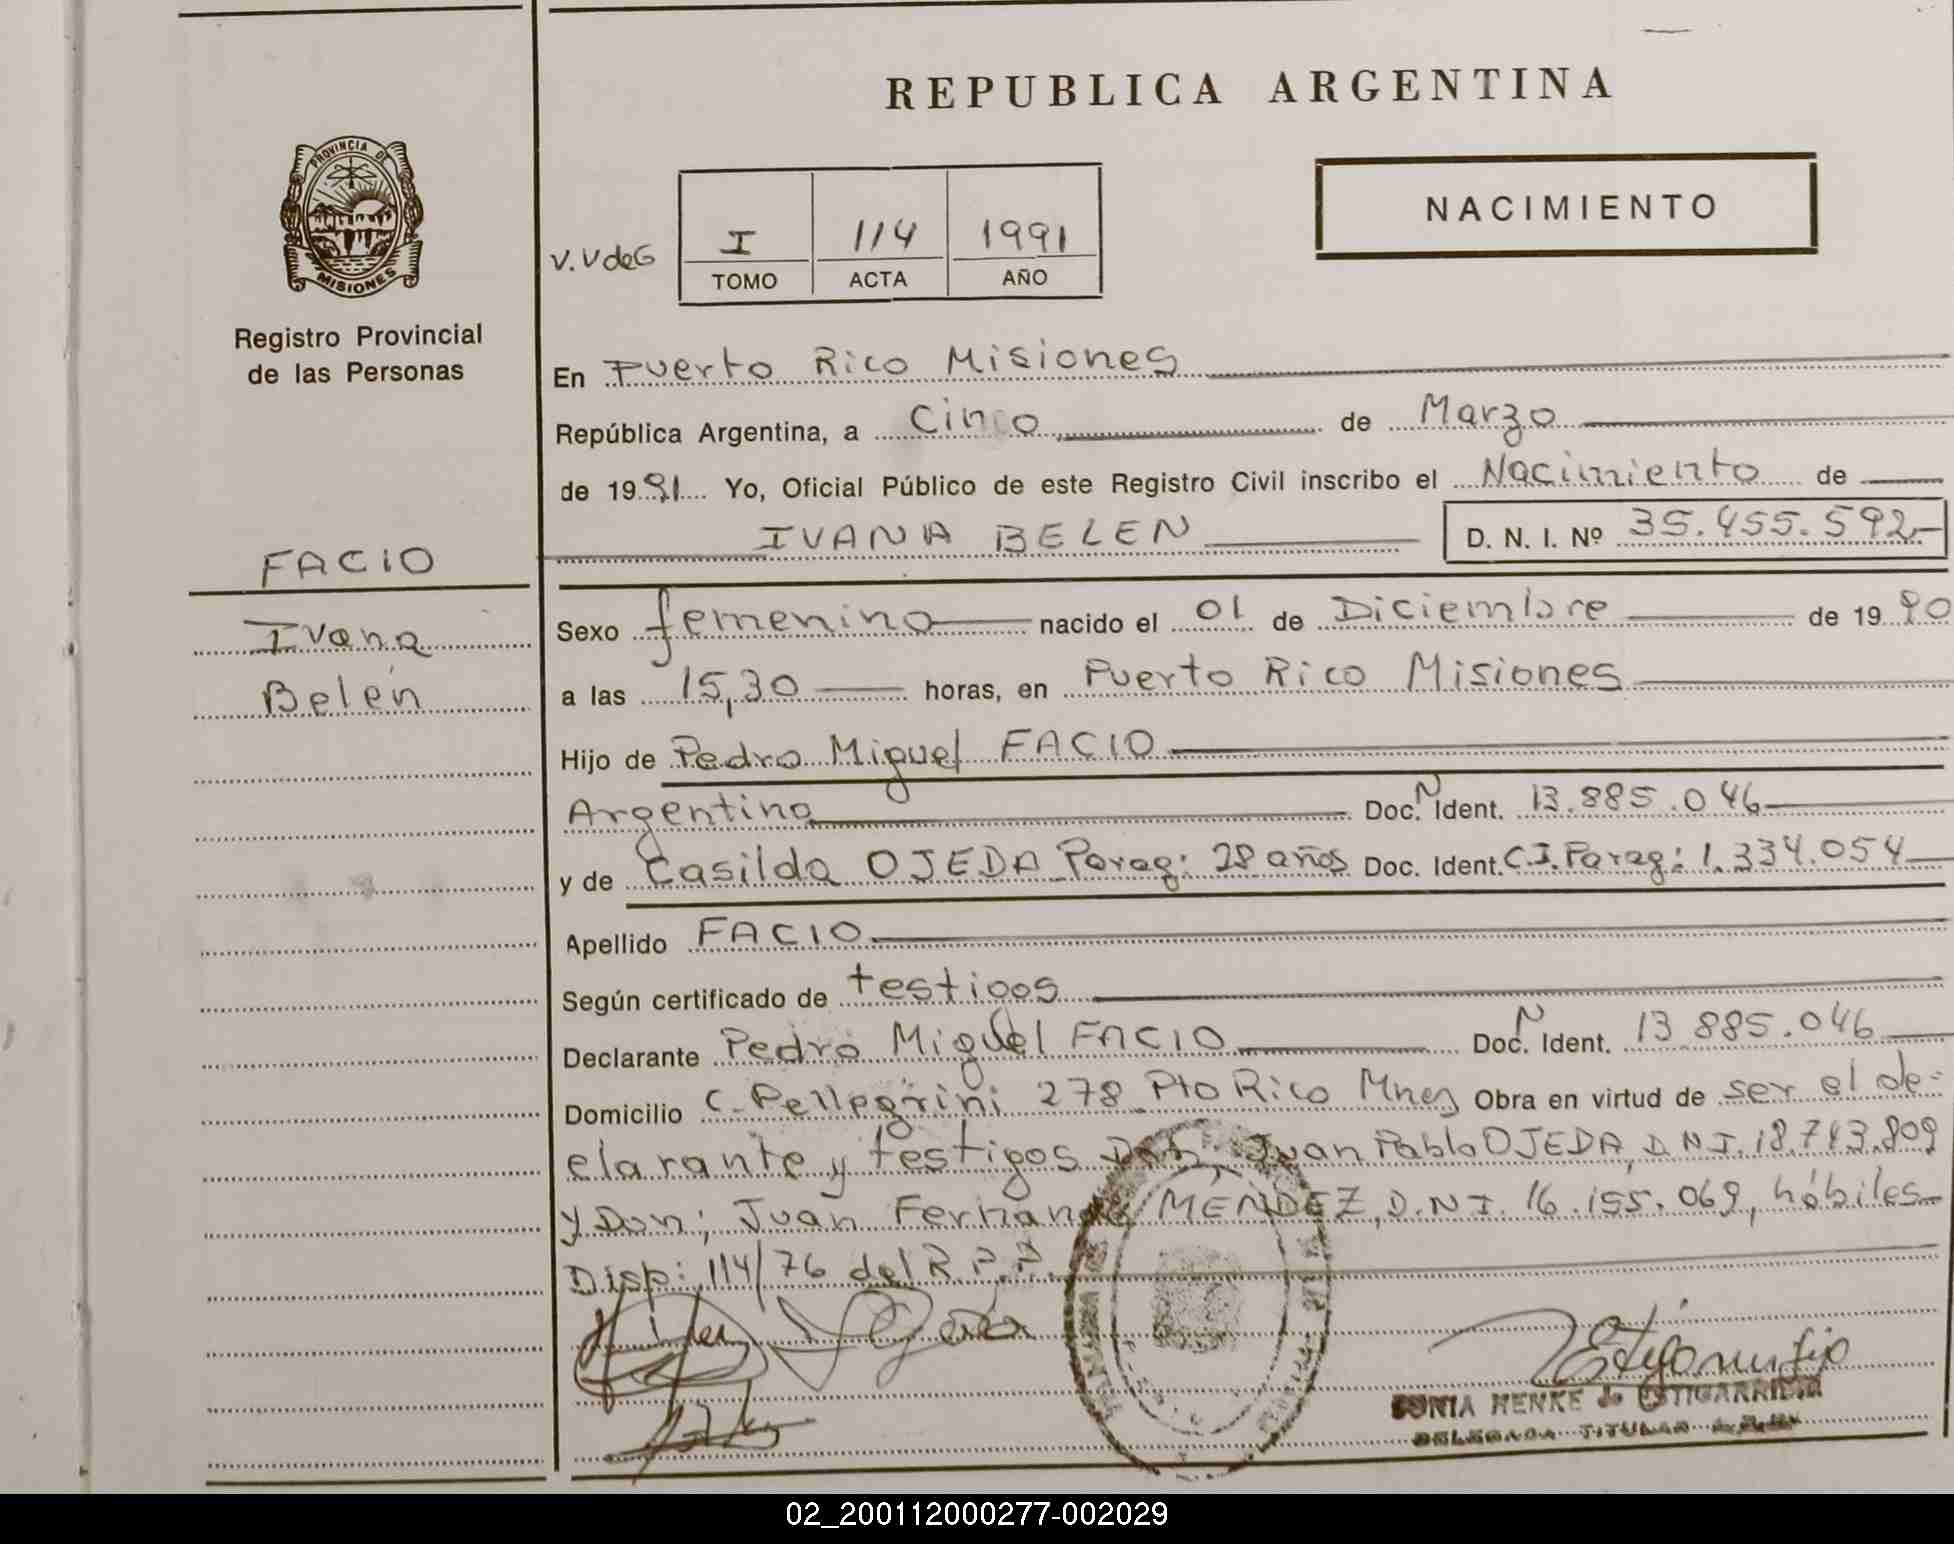 REPUBLICA ARGENTINA
PROVINCIA DE
MISIONES
Registro Provincial
de las Personas
NACIMIENTO
V.V de G
I 114 1991
TOMO ACTA AÑO
En Puerto Rico Misiones
República Argentina, a Cinco de Marzo
de 1991 Yo, Oficial Público de este Registro Civil inscribo el Nacimiento de
IVANA BELEN D. N. I. Nº 35.455.592
FACIO
Ivana
Belén
Sexo femenino nacido el 01 de Diciembre de 1990
a las 15,30 horas, en Puerto Rico Misiones
Hijo de Pedro Miguel FACIO
Argentino Doc. N Ident. 13.885.046
y de Casilda OJEDA Parag: 28 años Doc. Ident. C.I. Parag: 1.334.054
Apellido FACIO
Según certificado de testigos
Declarante Pedro Miguel FACIO Doc. N Ident. 13.885.046
Domicilio C. Pellegrini 278 Pto Rico Mnes Obra en virtud de ser el de-
clarante y testigos Don: Juan Pablo OJEDA, D.N.I. 18.743.809
y Don; Juan Fernando MENDEZ, D.N.I. 16.155.069, hábiles
Disp: 114/76 del R.P.P.
SONIA HENKE de ESTIGARRIBIA
DELEGADA TITULAR
02_200112000277-002029